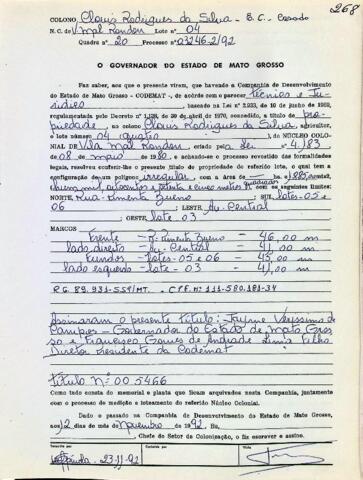 268
COLONO Clovis Rodrigues da Silva - B.C. Casado
N.C. de V. Mal Rondon Lote nº 04
Quadra nº 20 Processo nº 03246-2/92
O GOVERNADOR DO ESTADO DE MATO GROSSO
Faz saber, aos que o presente virem, que havendo a Companhia de Desenvolvimento
do Estado de Mato Grosso - CODEMAT -, de acôrdo com o parecer Técnico e Ju-
rídico baseado na Lei nº 2.233, de 10 de junho de
regulamentada pelo Decreto nº 1.138, de 30 de abril de 1970, concedido, a título de pro-
priedade ao colono Clovis Rodrigues da Silva, agricultor,
o lote nº 04 quatro do NÚCLEO COLO-
NIAL DE Vila Mal Rondon, criado pela Lei nº 4.183
de 08 de maio de 1980, e achando-se o processo revestido das formalidades
legais, resolveu conferir-lhe o presente título de propriedade do referido lote, o qual tem a
configuração de um polígono irregular com a área de 1885,00
oitocentos e oitenta e cinco metros quadrados com os seguintes limites:
NORTE, Rua Pimenta Bueno; SUL, lotes-05 e
06; LESTE, Av. Central
OESTE, lote 03
MARCOS Frente - R. Pimenta Bueno - 46,00 m
lado direito - Av. Central - 41,00 m
fundos - lotes-05 e 06 - 45,00 m
lado esquerdo - lote - 03 - 41,00 m
R.G. 89.931-SSP/MT. C.P.F. nº 111-580.181-34
Assinaram o presente título: Jayme Veríssimo de
Campos - Governador do Estado de Mato Gros
so e Francisco Gomes de Andrade Lima Filho
Diretor Presidente da Codemat
Título Nº 005466
Como tudo consta do memorial e planta que ficam arquivados nesta Companhia, juntamente
com o processo de medição e loteamento do referido Núcleo Colonial.
Dado e passado na Companhia de Desenvolvimento do Estado de Mato Grosso,
aos 12 dias do mês de Novembro de 1992. Eu,
Chefe do Setor de Colonização, o fiz escrever e assino.
23-11-92